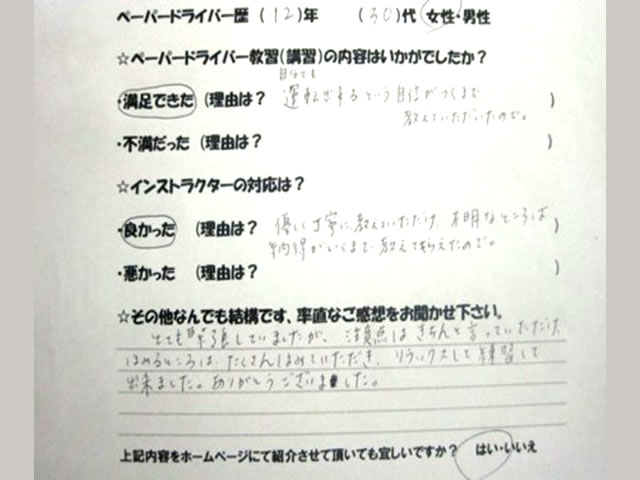 ペーパードライバー歴 (12)年 (30)代 女性・男性
☆ペーパードライバー教習(講習)の内容はいかがでしたか?
自分でも
・満足できた (理由は? 運転出来るという自信がつくまで
教えていただいたので。 )
・不満だった (理由は? )
☆インストラクターの対応は?
・良かった (理由は? 優しく丁寧に教えていただけ、不明なところは
納得がいくまで教えてもらえたので。 )
・悪かった (理由は? )
☆その他なんでも結構です、率直なご感想をお聞かせ下さい。
とても緊張していましたが、注意点はきちんと言っていただけ、
ほめるところは、たくさんほめていただき、リラックスして練習して
出来ました。ありがとうございました。
上記内容をホームページにて紹介させて頂いても宜しいですか? はい・いいえ